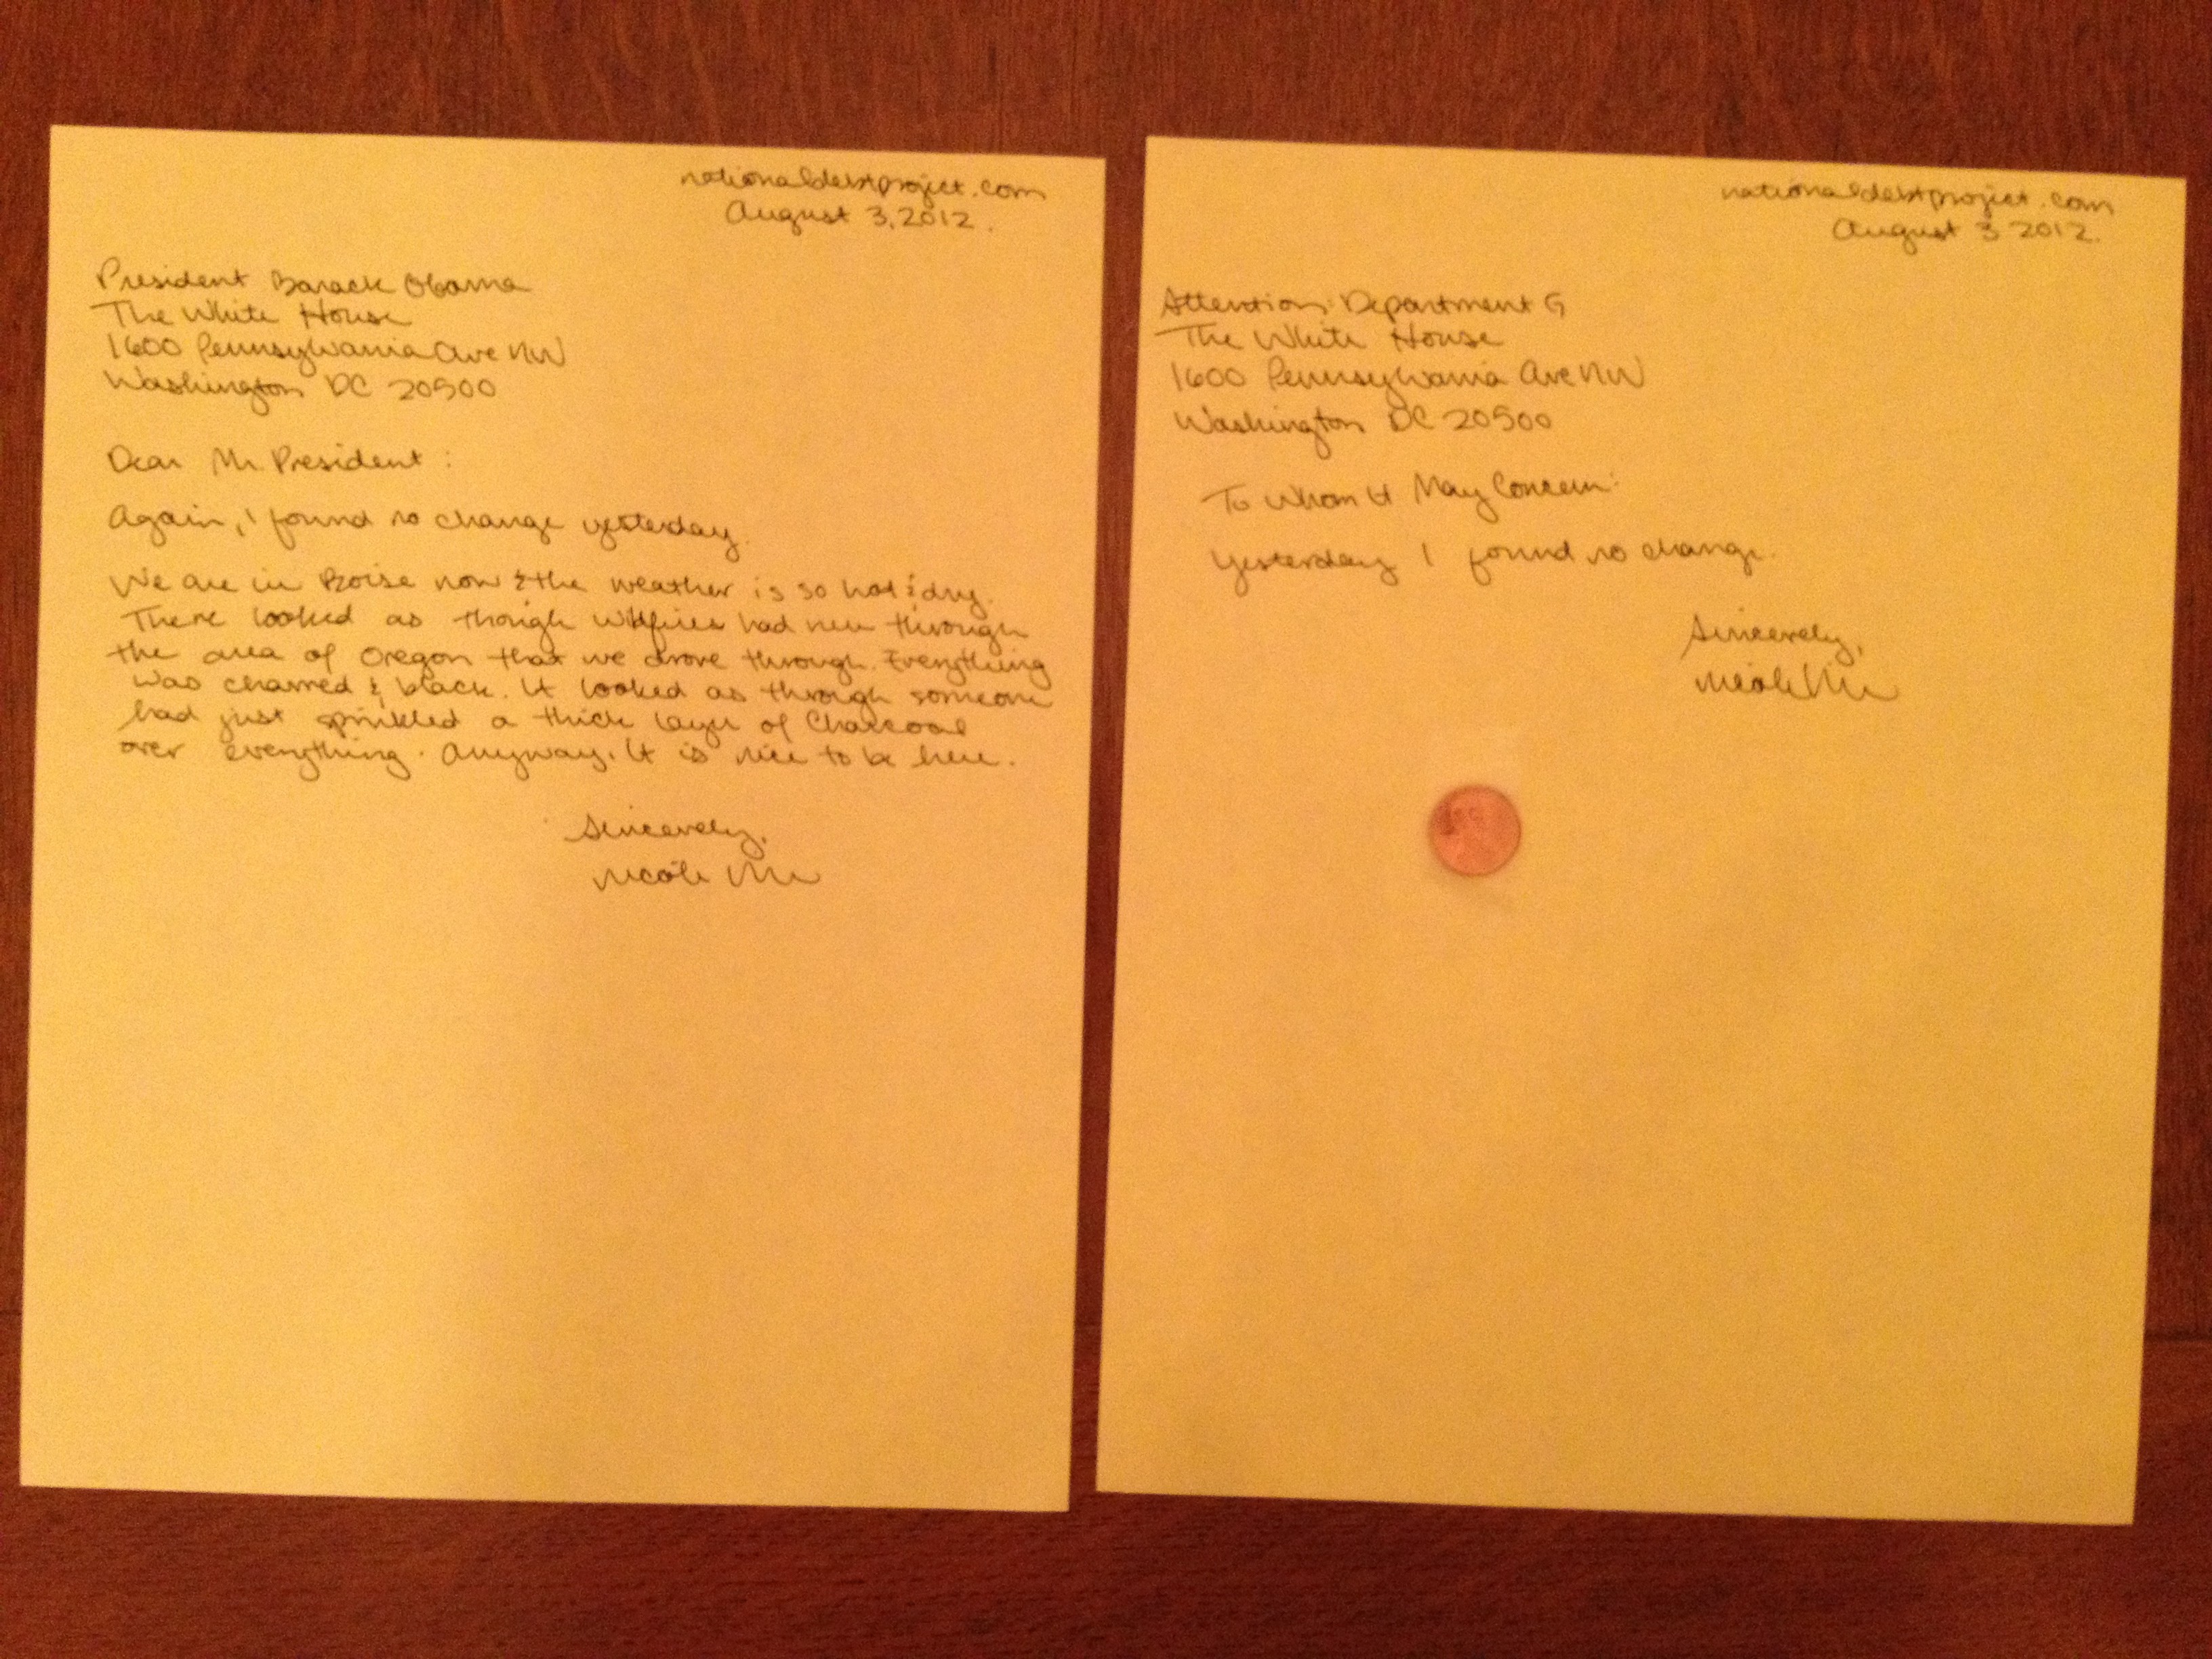 nationaldebtproject.com
August 3, 2012.
President Barack Obama
The White House
1600 Pennsylvania Ave NW
Washington DC 20500
Dear Mr. President:
Again, I found no change yesterday.
We are in Boise now & the weather is so hot & dry.
There looked as though wildfires had run through
the area of Oregon that we drove through. Everything
was charred & black. It looked as through someone
had just sprinkled a thick layer of Charcoal
over everything. Anyway, it is nice to be here.
Sincerely,
Nicole
nationaldebtproject.com
August 3 2012.
Attention: Department G
The White House
1600 Pennsylvania Ave NW
Washington DC 20500
To Whom It May Concern:
Yesterday I found no change.
Sincerely,
Nicole